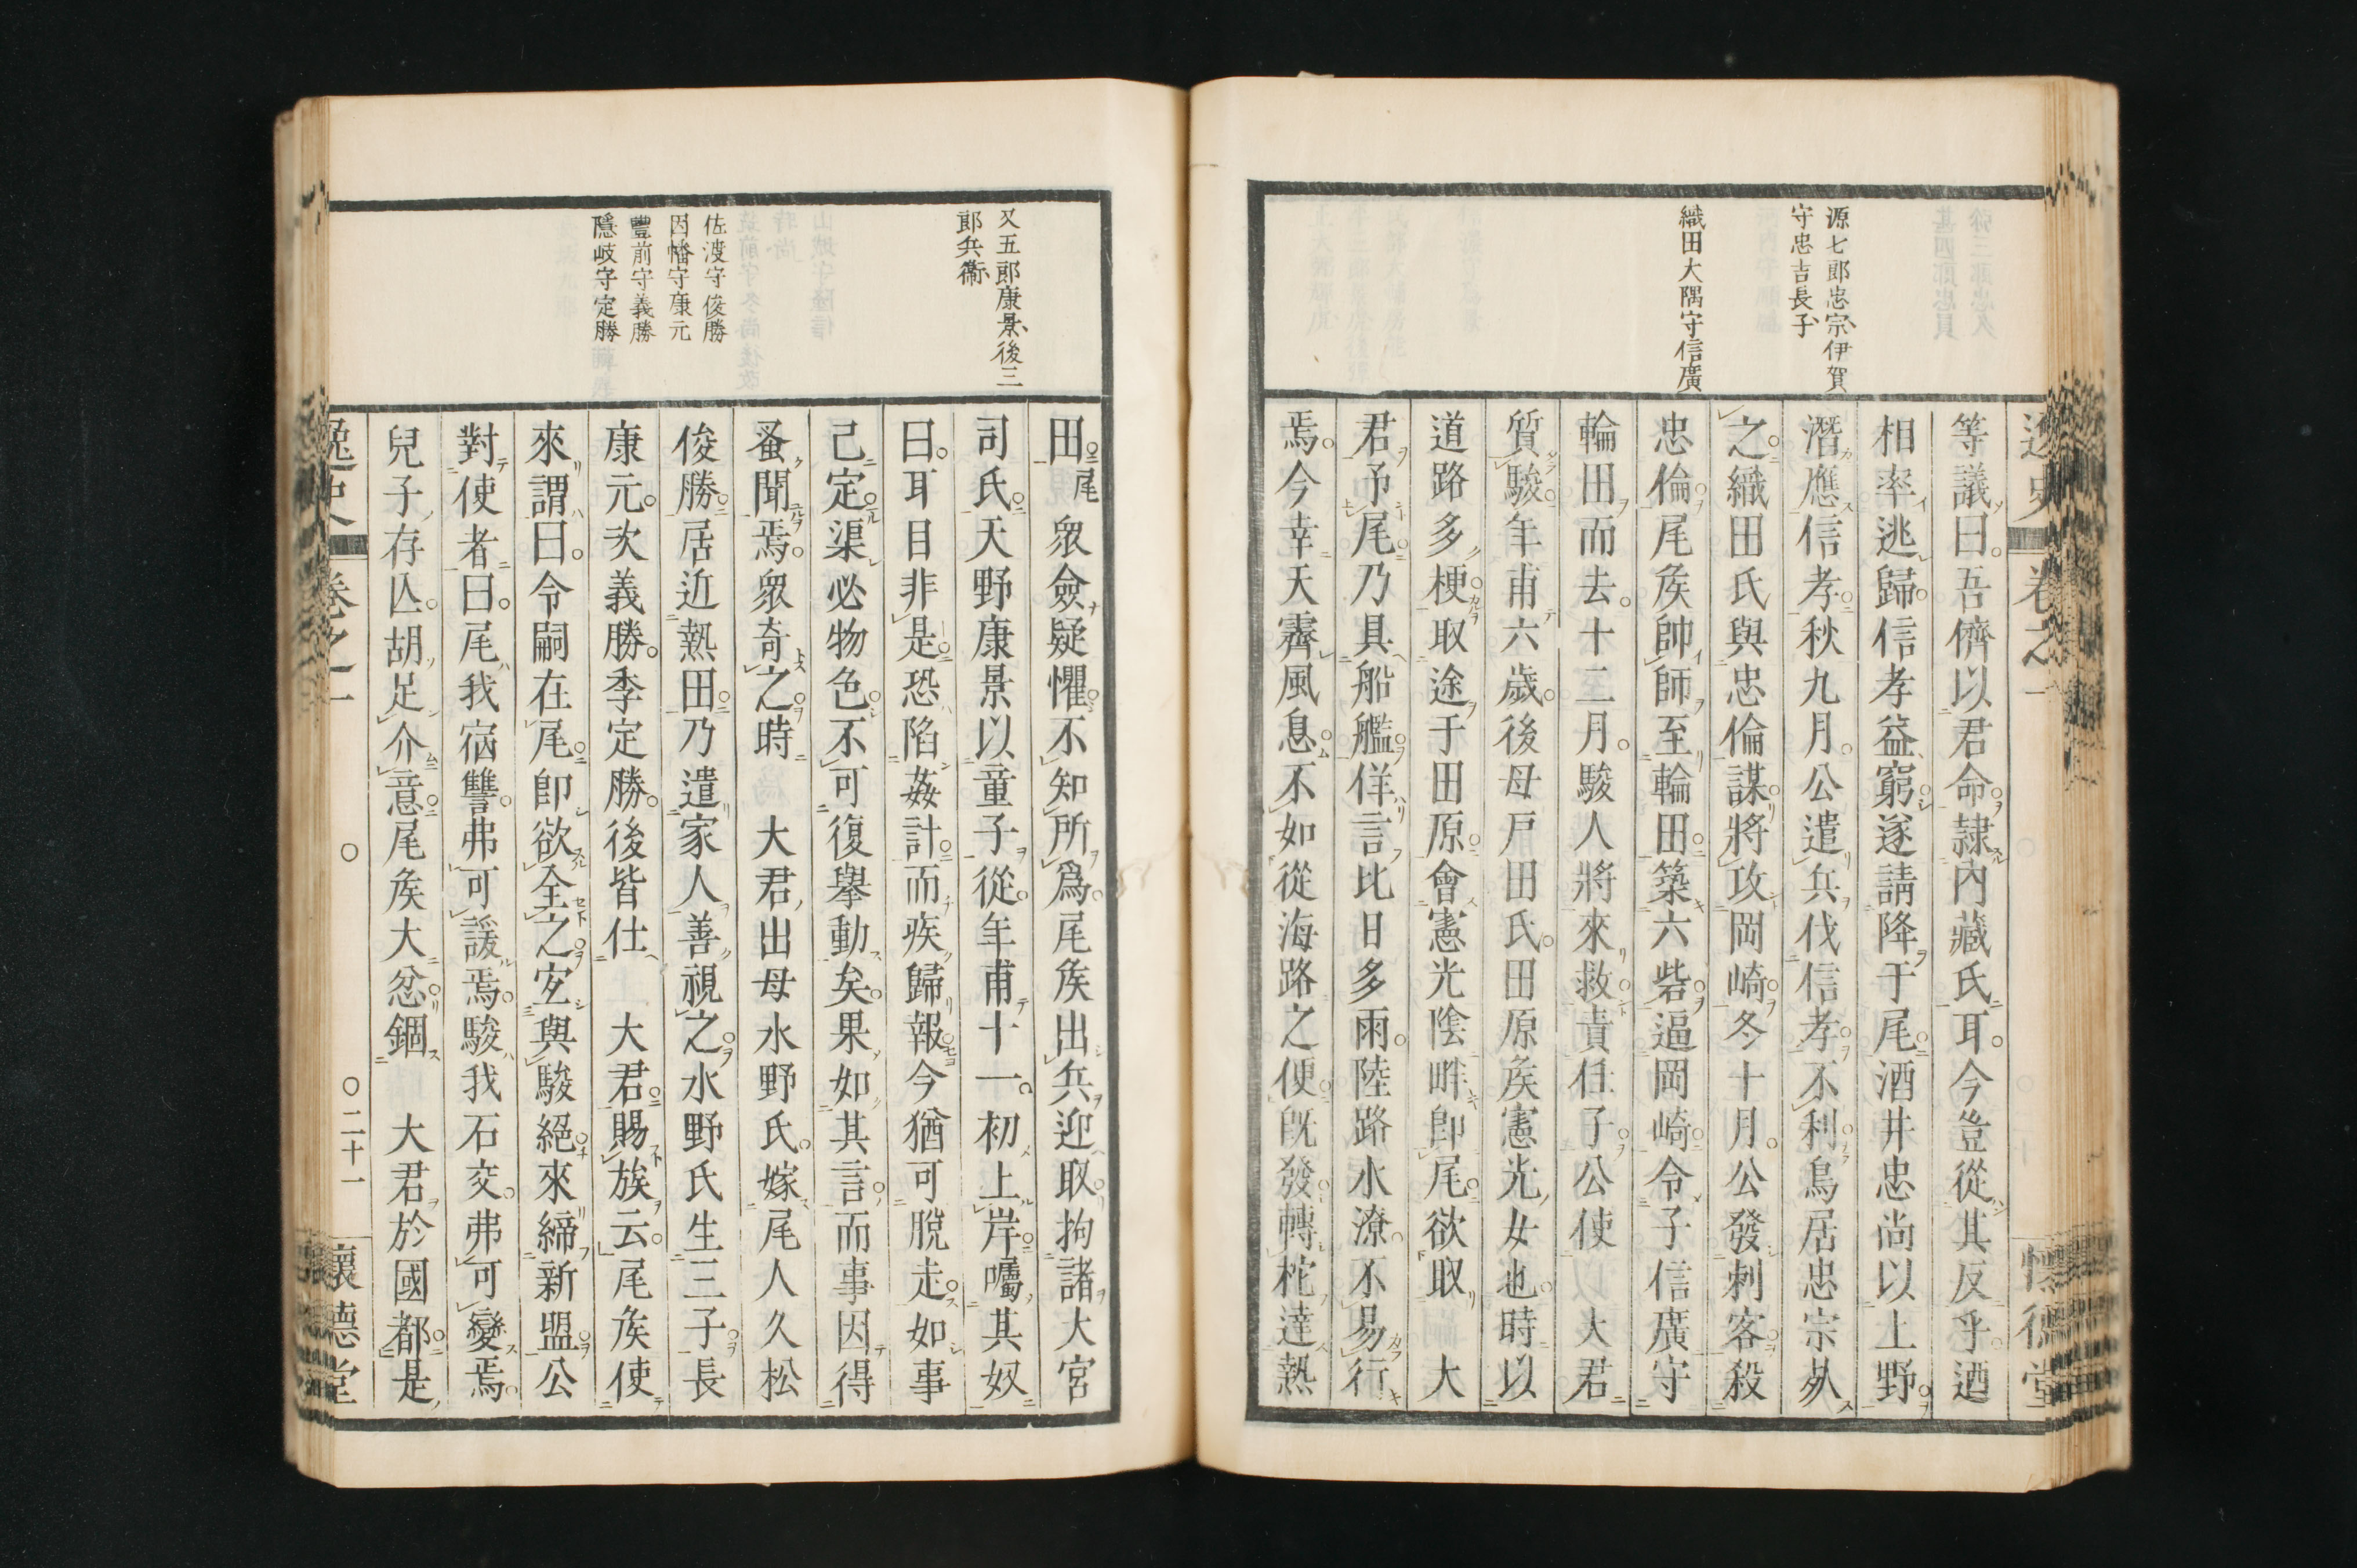 逸史
卷之一
懷德堂
源七郎忠宗伊賀
守忠吉長子
織田大隅守信廣
等議曰吾儕以君命隷内藏氏耳今豈從其反乎迺
相率逃歸信孝益窮遂請降于尾酒井忠尚以上野
潛應信孝秋九月公遣兵伐信孝不利鳥居忠宗死
之織田氏與忠倫謀將攻岡崎冬十月公發刺客殺
忠倫尾矦帥師至輪田築六砦逼岡崎令子信廣守
輪田而去十二月駿人將來救責任子公使 大君
質駿年甫六歲後母戸田氏田原矦憲光女也時以
道路多梗取途于田原會憲光陰畔即尾欲取 大
君予尾乃具船艦佯言比日多雨陸路水潦不易行
焉今幸天霽風息不如從海路之便旣發轉柁達熱
又五郎康景後三
郎兵衞
佐渡守俊勝
因幡守康元
豐前守義勝
隱岐守定勝
田尾衆僉疑懼不知所爲尾矦出兵迎取拘諸大宮
司氏天野康景以童子從年甫十一初上岸囑其奴
曰耳目非是恐陷姦計而疾歸報今猶可脫走如事
己定渠必物色不可復擧動矣果如其言而事因得
蚤聞焉衆奇之時 大君出母水野氏嫁尾人久松
俊勝居近熱田乃遣家人善視之水野氏生三子長
康元次義勝季定勝後皆仕 大君賜族云尾矦使
來謂曰令嗣在尾卽欲全之宐與駿絕來締新盟公
對使者曰尾我宿讐弗可諼焉駿我石交弗可變焉
兒子存亾胡足介意尾矦大忿錮 大君於國都是
逸史
卷之一
二十一
懷德堂